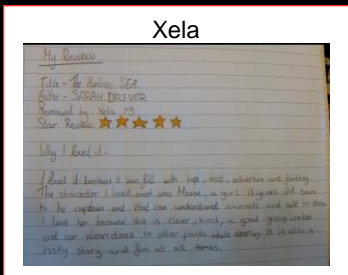 Xela
My Review
Title - The Huntress SEA
Author - SARAH DRIVER
Reviewed by: Xela Y5
Star Review:
Why I loved it:
I loved it because it was full with hope, trust, adventure and family.
The character I loved most was Mouse, a girl 13 years old soon
to be captain and that can understand animals and talk to them
I love her because she is clever, kind, a good group worker
and can dreamdance to other places while sleeping. It is also a
risky story and fun at all times.